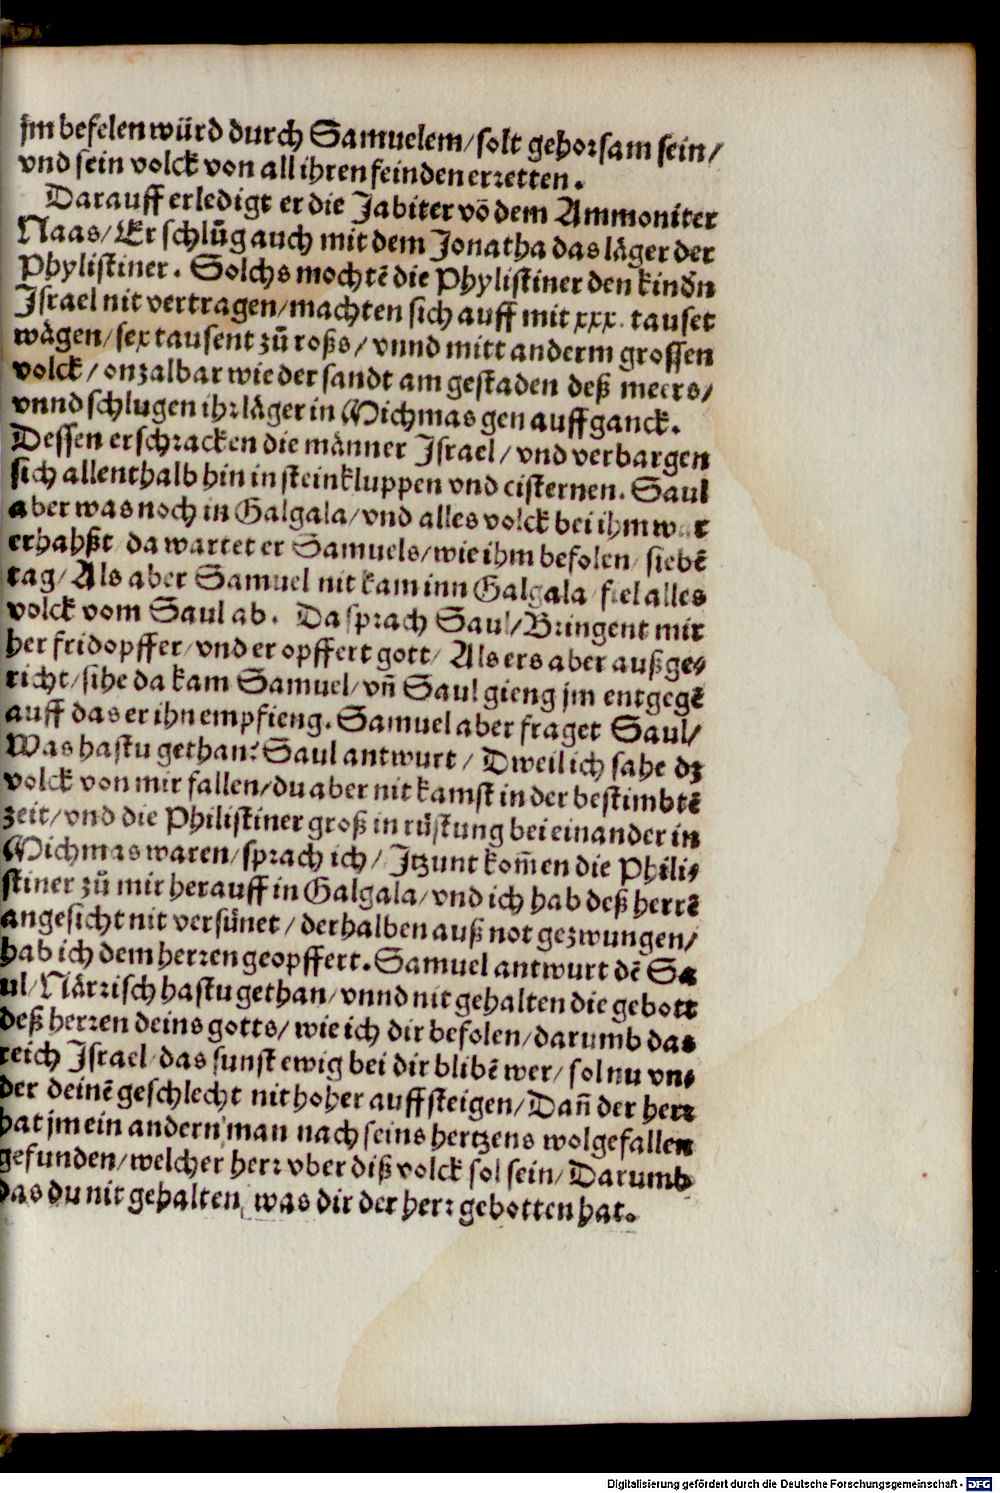 jm befelen würd durch Samuelem/ solt gehorsam sein/
vnd sein volck von all ihren feinden erretten.
Darauff erledigt er die Jabiter võ dem Ammoniter
Naas/ Er schlůg auch mit dem Jonatha das läger der
Phylistiner. Solchs mochtẽ die Phylistiner den kindn̄
Israel nit vertragen/ machten sich auff mit xxx. tauset
wägen/ sex tausent zů roßs/ vnnd mitt anderm grossen
volck/ onzalbar wie der sandt am gestaden deß meers/
vnnd schlugen ihr läger in Michmas gen auffganck.
Dessen erschracken die männer Israel/ vnd verbargen
sich allenthalb hin in steinkluppen vnd cisternen. Saul
aber was noch in Galgala/ vnd alles volck bei ihm war
erhahßt/ da wartet er Samuels/ wie ihm befolen/ siebẽ
tag/ Als aber Samuel nit kam inn Galgala/ fiel alles
volck vom Saul ab. Da sprach Saul/ Bringent mir
her fridopffer/ vnd er opffert gott/ Als ers aber außge-
richt/ sihe da kam Samuel/ vñ Saul gieng jm entgegẽ
auff das er ihn empfieng. Samuel aber fraget Saul/
Was hastu gethan? Saul antwurt/ Dweil ich sahe dz
volck von mir fallen/ du aber nit kamst in der bestimbtẽ
zeit/ vnd die Philistiner groß in rüstung bei einander in
Michmas waren/ sprach ich/ Jtzunt kom̃en die Phili-
stiner zů mir herauff in Galgala/ vnd ich hab deß herrẽ
angesicht nit versünet/ derhalben auß not gezwungen/
hab ich dem herren geopffert. Samuel antwurt dẽ Sa
ul/ Närrisch hastu gethan/ vnnd nit gehalten die gebott
deß herren deins gotts/ wie ich dir befolen/ darumb das
reich Israel/ das sunst ewig bei dir blibẽ wer/ sol nu vn-
der deinẽ geschlecht nit hoher auffsteigen/ Dañ der herr
hat jm ein andern man nach seins hertzens wolgefallen
gefunden/ welcher herr vber diß volck sol sein/ Darumb
das du nit gehalten, was dir der herr gebotten hat.
Digitalisierung gefördert durch die Deutsche Forschungsgemeinschaft - DFG